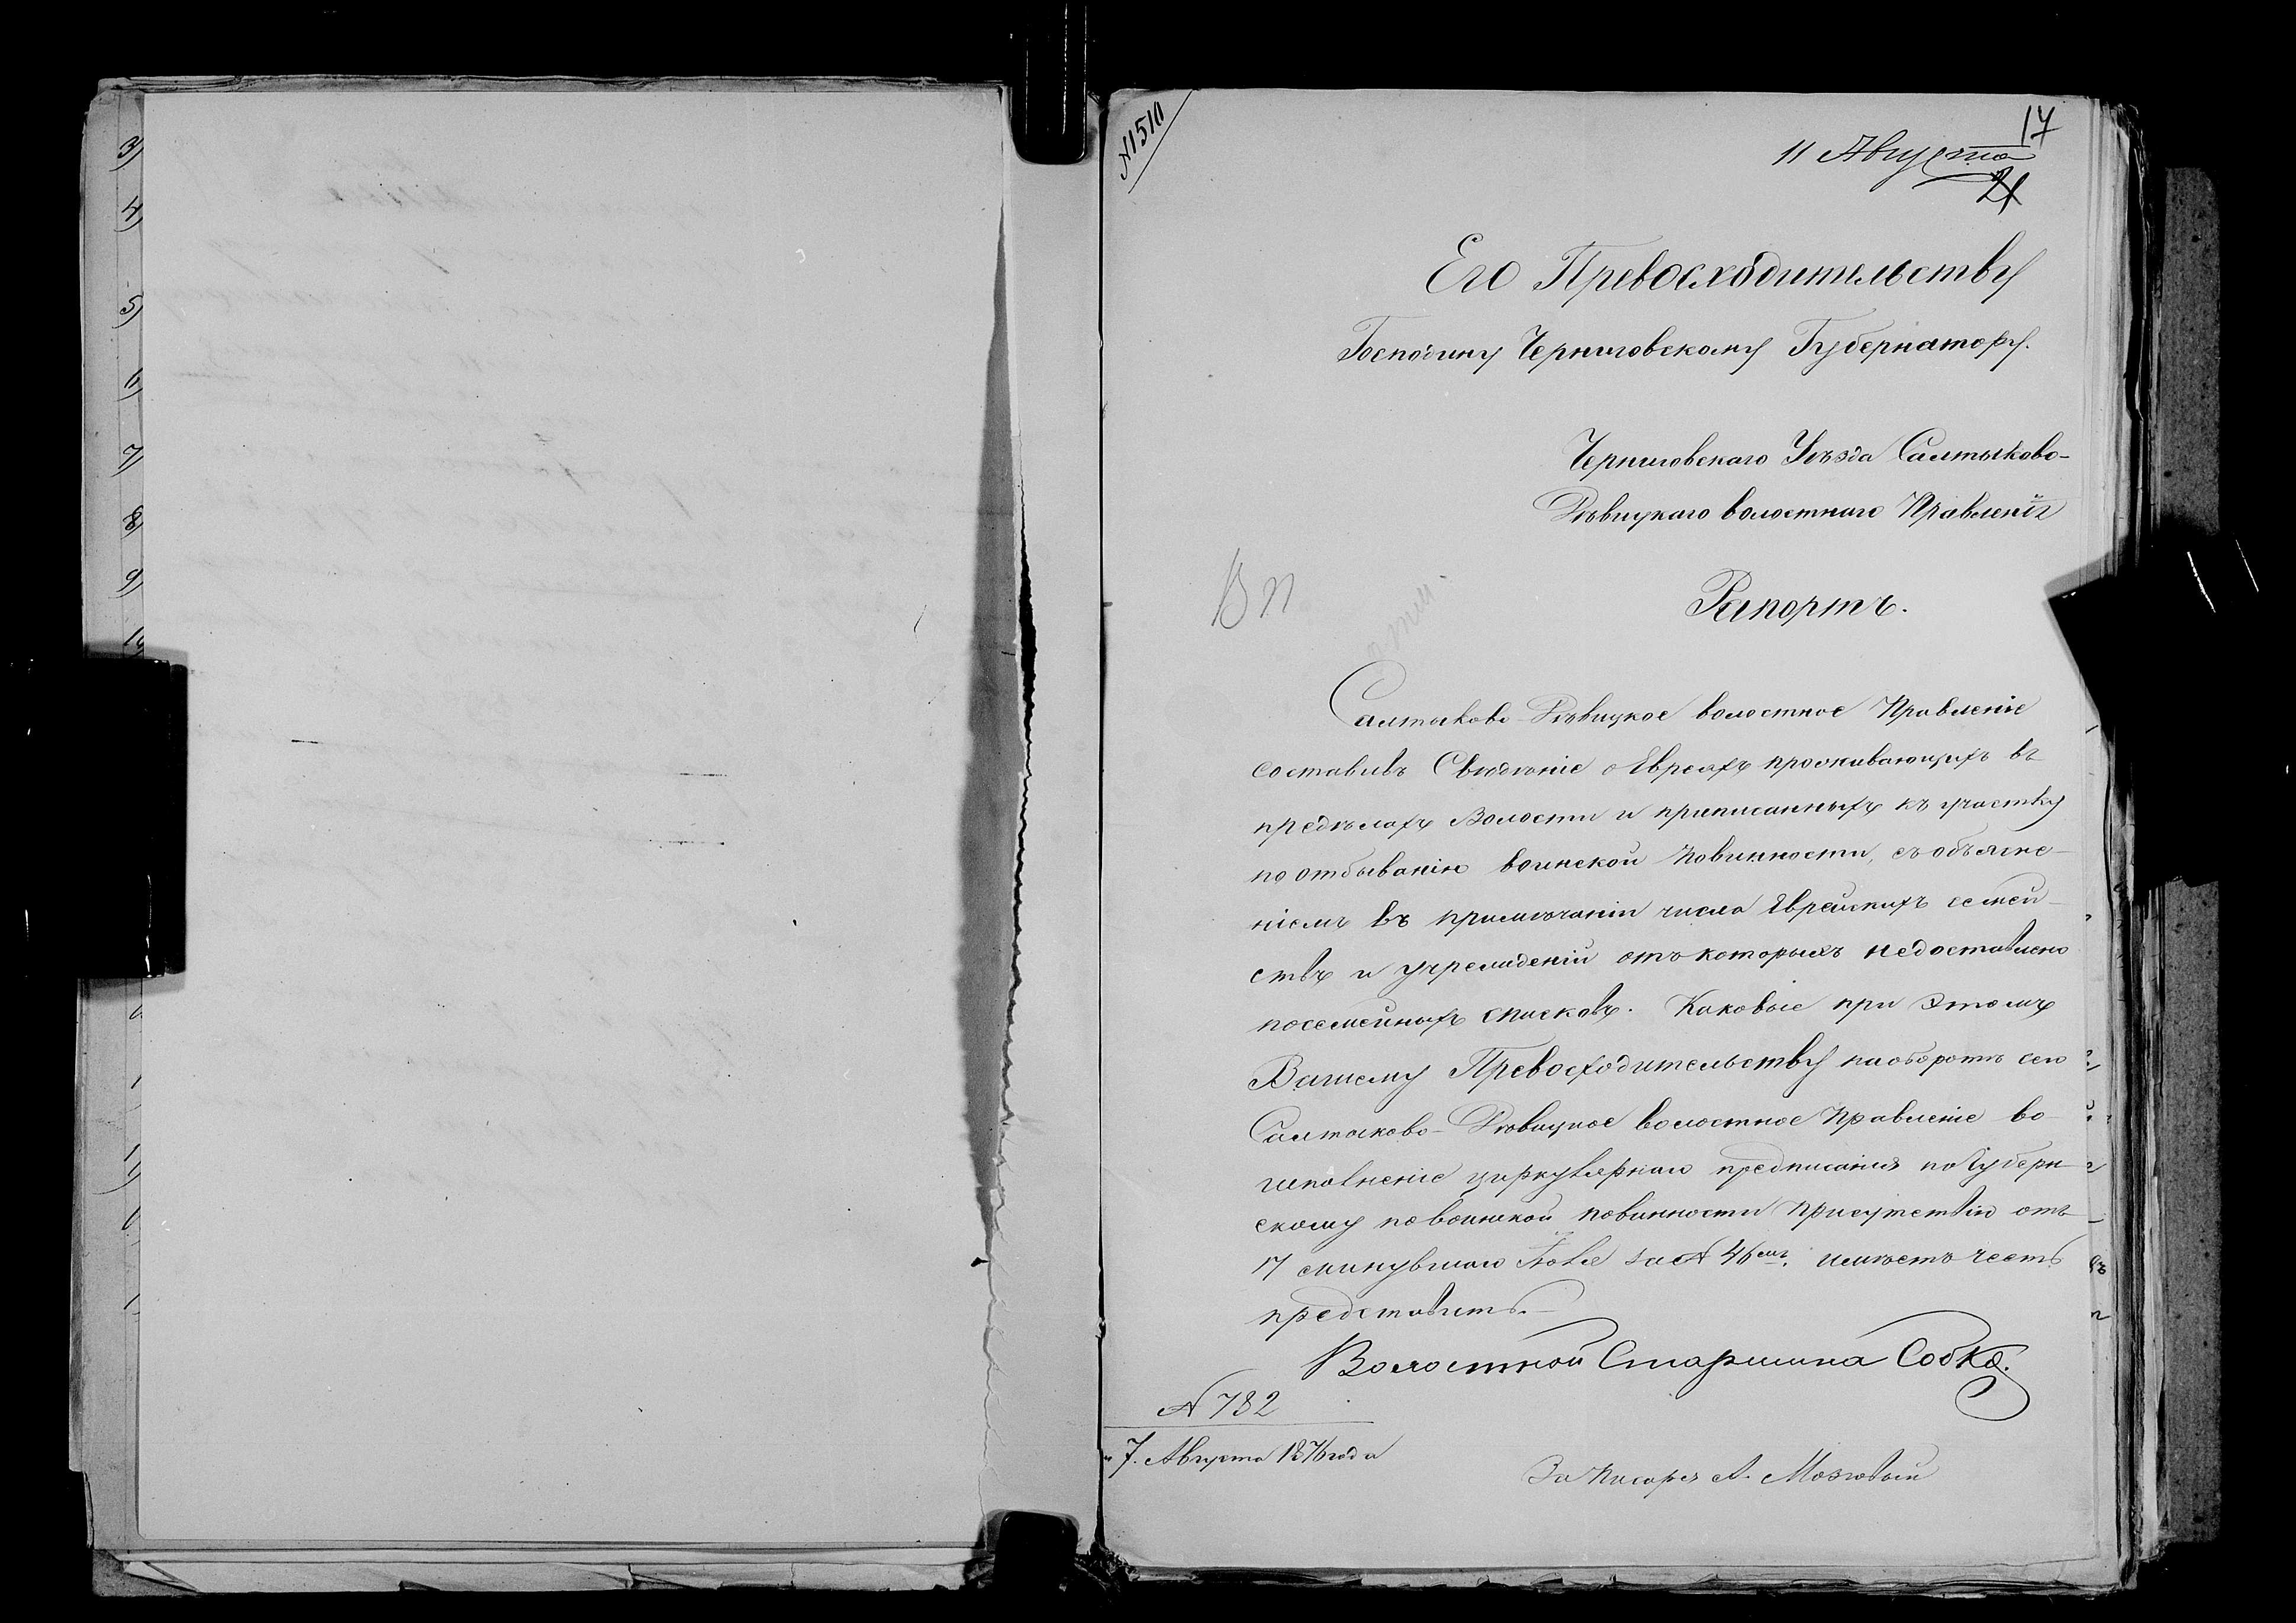 3)
4)
5)
6)
7)
8)
9)
№ 1510
17
11 Августа
21
Его Превосходительству
Господину Черниговскому Губернатору.
Черниговскаго Уѣзда Салтыково-
Дѣвицкаго волостнаго Правленія
Рапортъ.
ВП
Салтыково-Дѣвицкое волостное Правленіе
составивъ Свѣдѣніе о Евреяхъ проживающихъ въ
предѣлахъ Волости и приписанныхъ къ участку
по отбыванію воинской повинности, съ объясне-
ніемъ въ примѣчаніи числа Еврейскихъ семей-
ствъ и учрежденій отъ которыхъ недоставлено
посемейныхъ списковъ. Каковые при этомъ
Вашему Превосходительству на оборотѣ сего
Салтыково-Дѣвицкое волостное Правленіе во
исполненіе циркулярнаго предписанія по Губерн-
скому по воинской повинности Присутствію отъ
17 минувшаго Іюля за № 46, имѣетъ честь
представить.—
Волостной Старшина Собко.
№ 782
7. Августа 1876 года
За Писаря А. Мозговый